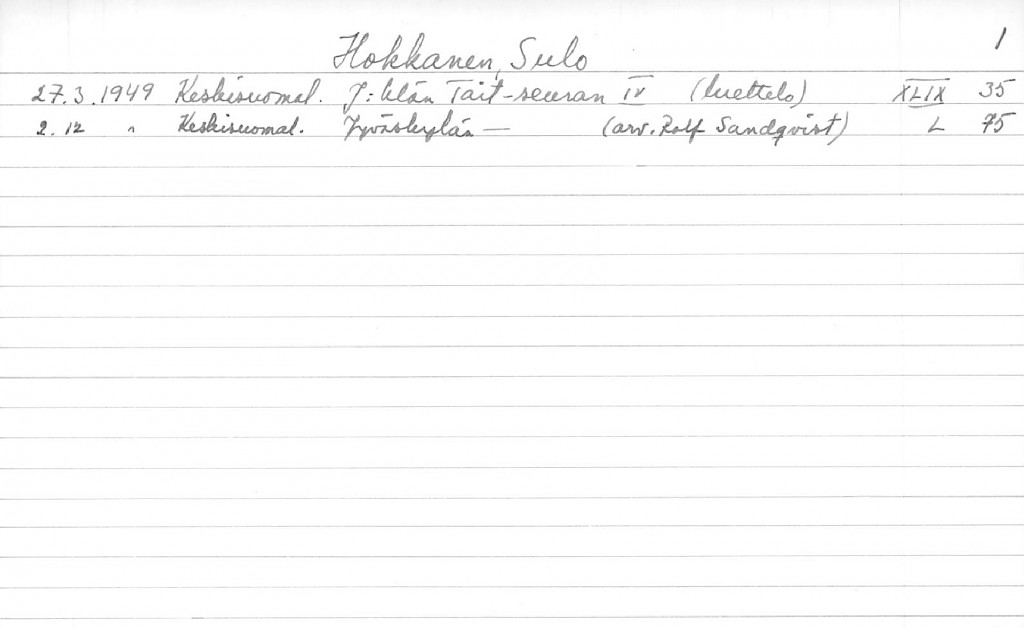 Hokkanen, Sulo 1
27.3.1949 Keskisuomal. J:kylän Tait-seuran IV (luettelo) XLIX 35
2.12 " Keskisuomal. Jyväskylän — (arv. Rolf Sandqvist) L 75